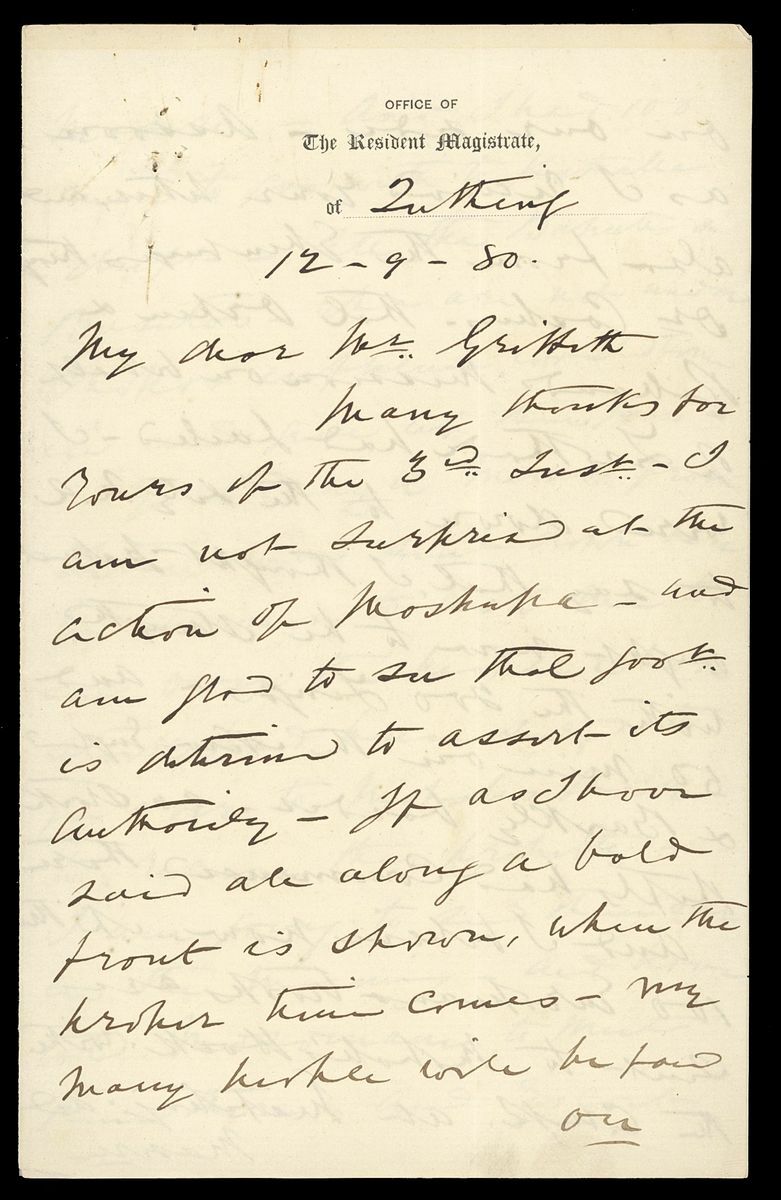 OFFICE OF
The Resident Magistrate,
of Quthing
12 - 9 - 80.
My dear Mr. Griffith
Many thanks for
yours of the 3rd Inst. - I
am not surprised at the
action of Moshupa - and
am glad to see that Govt.
is determined to assert its
authority - If as I have
said all along a bold
front is shown, when the
proper time comes - my
many people will be found
on